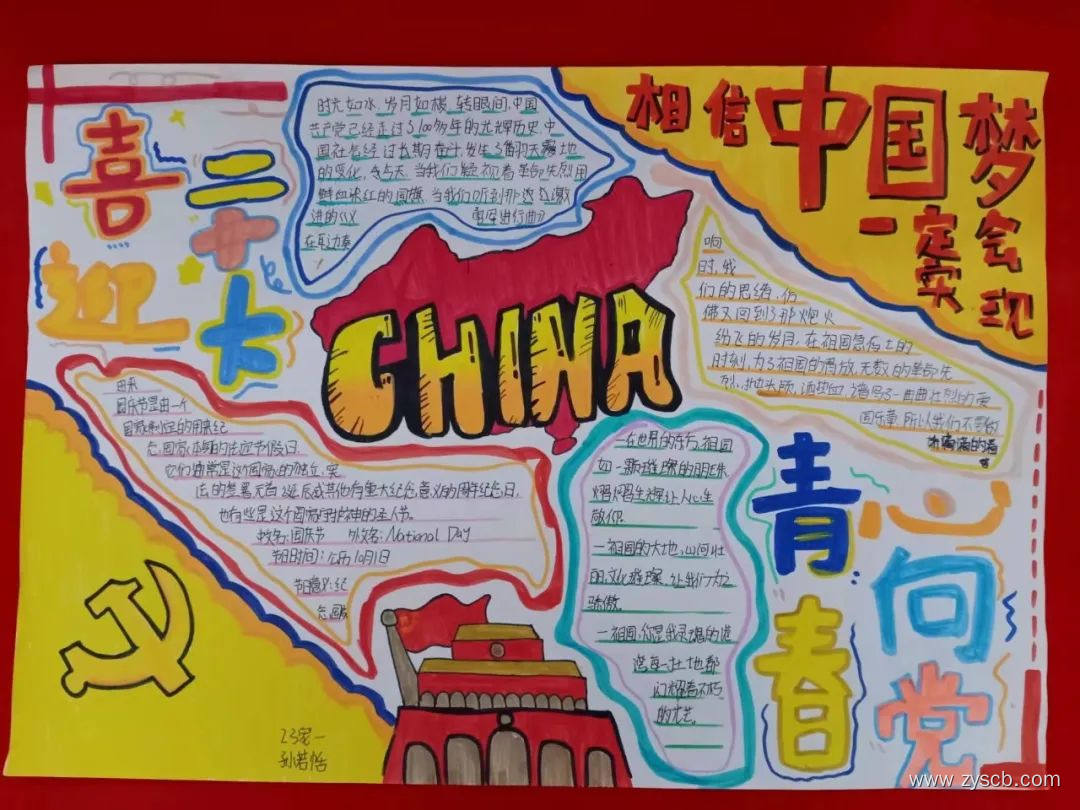 喜迎
二十大
时光如水，岁月如梭，转眼间，中国
共产党已经走过了100多年的光辉历史，中
国社会经过长期奋斗，发生了翻天覆地
的变化，今天，当我们凝视着革命先烈用
鲜血染红的国旗，当我们听到那
进的《义勇军进行曲》
在耳边奏
相信中国梦
一定会
实现
响
时，我
们的思绪，仿
佛又回到了那炮火
纷飞的岁月，在祖国危
时刻，为了祖国的解放，无数的革命先
烈，抛头颅，洒热血，谱写了一曲曲壮烈的
国乐章，所以我们不要做
CHINA
由来
国庆节是由一个
国家制定的用来纪
念国家本身的法定节假日，
它们通常是这个国家的独立、宪
法的签署
其他有重大纪念意义的周年纪念日，
也有些是这个国家守护神的圣人节。
中文名：国庆节 外文名：National Day
节日时间：公历10月1日
节日意义：纪
念国家
一在世界的东方，祖国
如一颗璀璨的明珠
熠熠生辉让人心生
敬仰。
一祖国的大地，山河壮
丽，文化璀璨，让我们为之
骄傲
一祖国，你是我灵魂的
每一土地都
闪耀着不朽
的光芒。
青春
心向党
23家一
孙若恬
www.zyscb.com